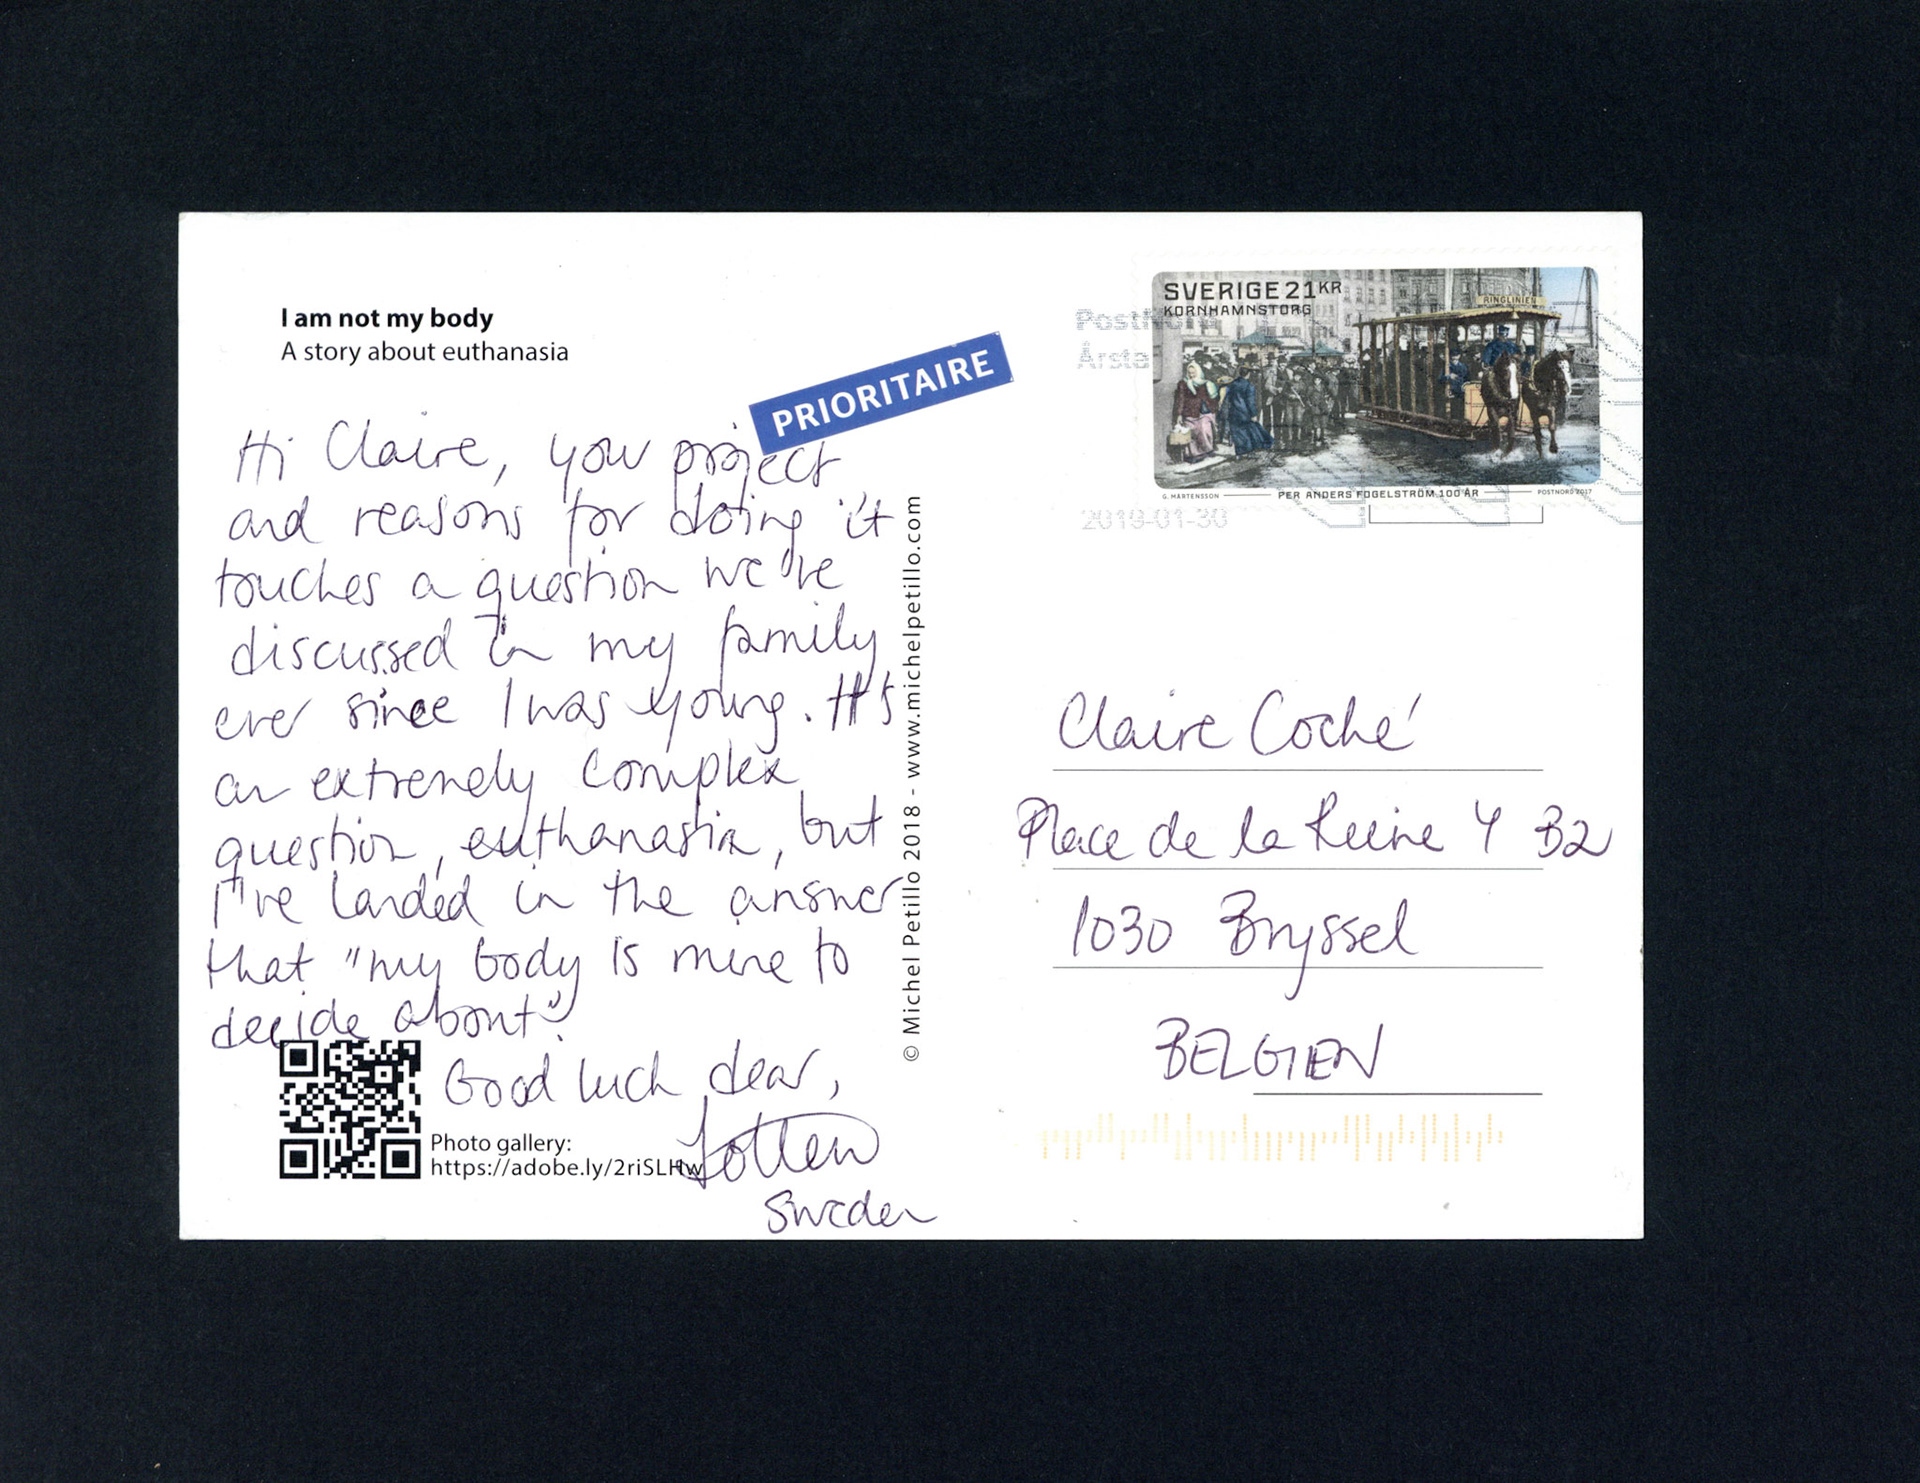 I am not my body
A story about euthanasia
PRIORITAIRE
Hi Claire, your project
and reasons for doing it
touches a question we've
discussed in my family
ever since I was young. It's
an extremely complex
question, euthanasia, but
I've landed in the answer
that "my body is mine to
decide about".
Good luck dear,
Lotten
Sweden
Photo gallery:
https://adobe.ly/2riSLHw
© Michel Petillo 2018 - www.michelpetillo.com
SVERIGE 21 KR
KORNHAMNSTORG
RINGLINIEN
G. MÅRTENSSON
PER ANDERS FOGELSTRÖM 100 ÅR
POSTNORD 2017
PostNord
Årsta
2019-01-30
Claire Coché
Place de la Reine 4 B2
1030 Bryssel
BELGIEN